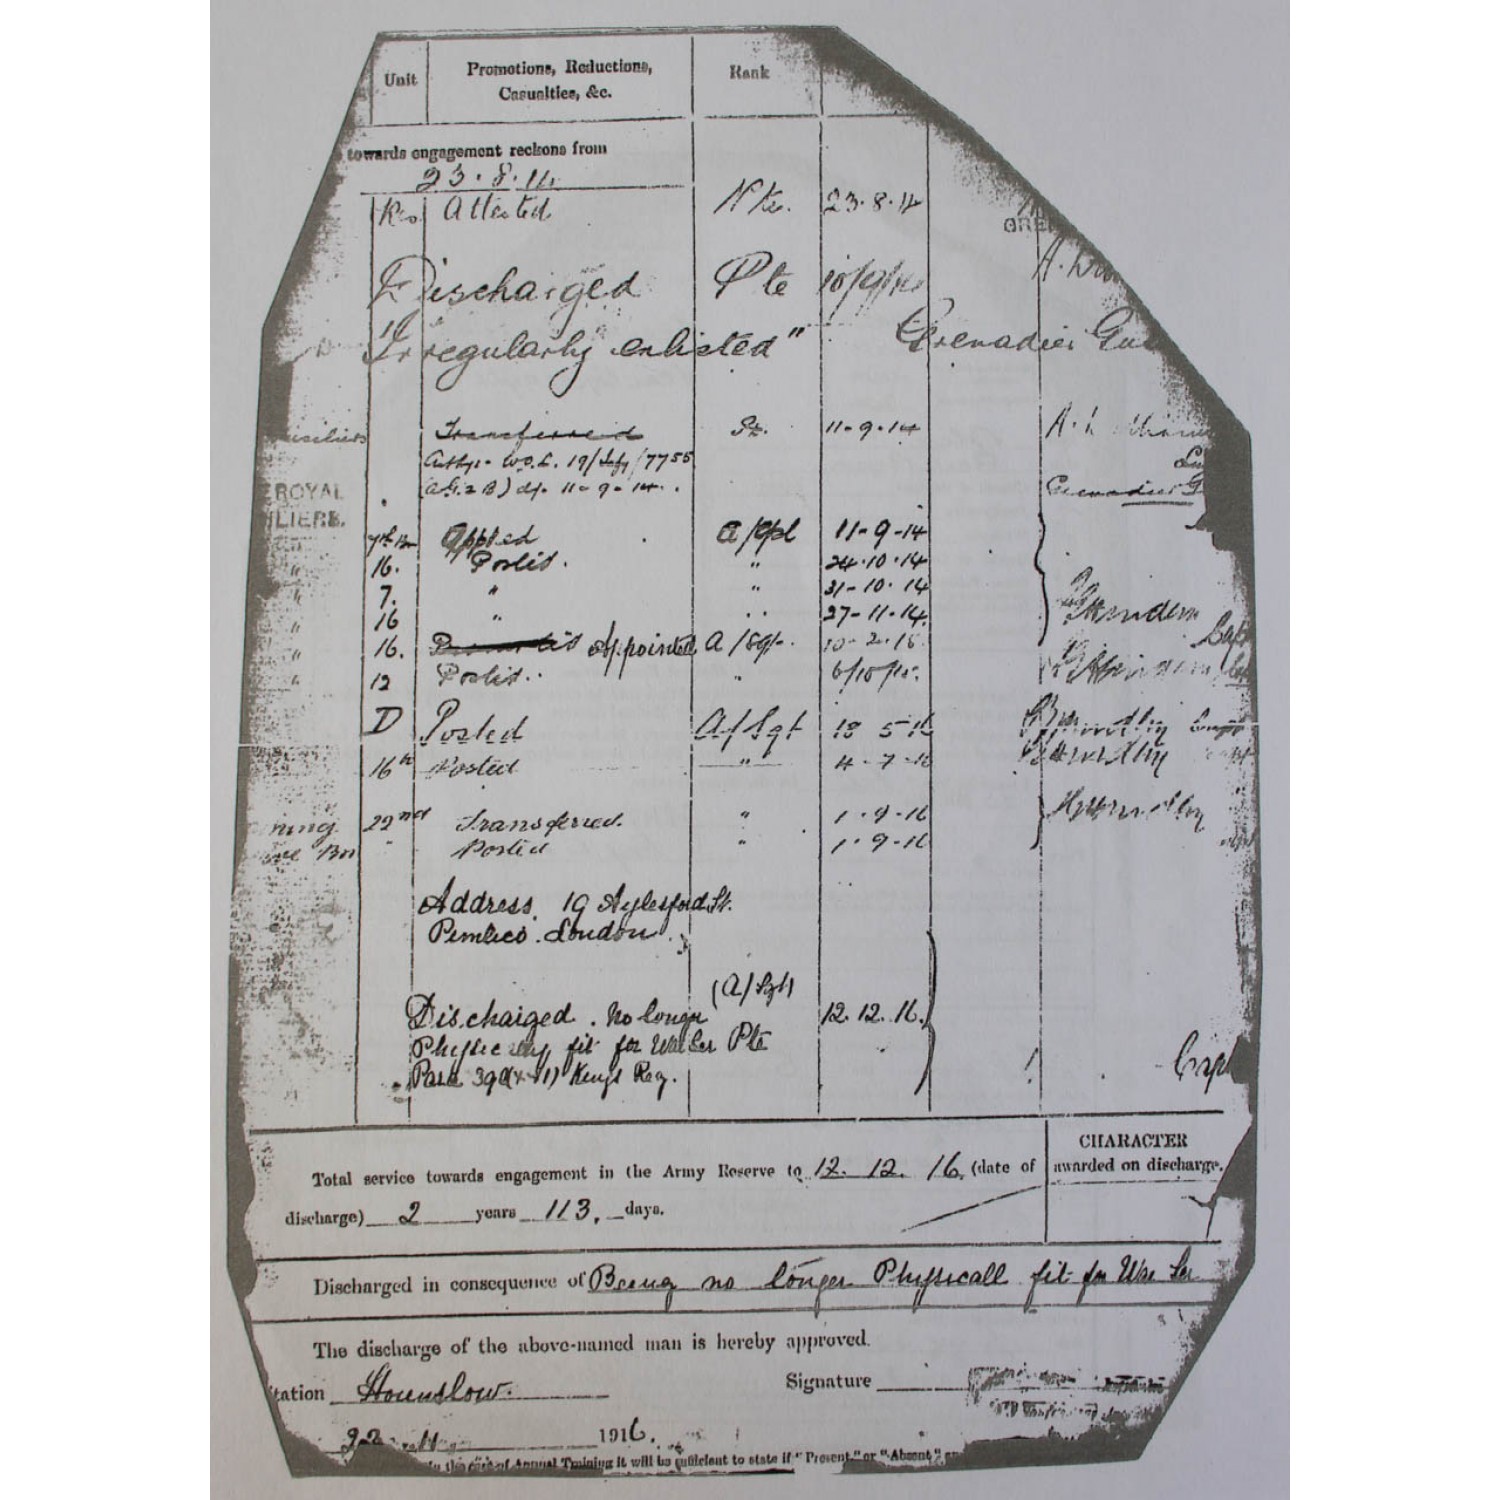 Unit Promotions, Reductions, Rank
Casualties, &c.
towards engagement reckons from
23.8.14
Res Attested Pte. 23.8.14
GRE
Discharged Pte 10/9/14
"Irregularly enlisted" Grenadier Gua
Transferred Pte. 11-9-14
Authy:- W.O.L. 19/ /7755
(A.G.2B) d/- 11-9-14.
Grenadier G
ROYAL
ILIERS.
7th Bn Appted A/Cpl 11-9-14
16. Posted. " 24.10.14
7. " " 31-10.14
16 " " 27-11-14.
16. Appointed A/Sgt. 10-2-15
12 Posted. " 6/10/15.
D Posted A/Sgt 18 5-16
16th Posted " 4-7-16
ning 22nd Transferred. " 1-9-16
Bn " Posted " 1-9-16
Address 19 Aylesford St.
Pimlico. London
(A/Sgt)
Discharged. No longer 12.12.16.
Physically fit for War Ser Pte
Para 392 Kings Reg. Capt
CHARACTER
Total service towards engagement in the Army Reserve to 12.12.16. (date of awarded on discharge.
discharge) 2 years 113. days.
Discharged in consequence of Being no longer Physicall fit for War Ser
The discharge of the above-named man is hereby approved.
tation Hounslow. Signature
22 1916.
In the case of Annual Training it will be sufficient to state if "Present," or "Absent"